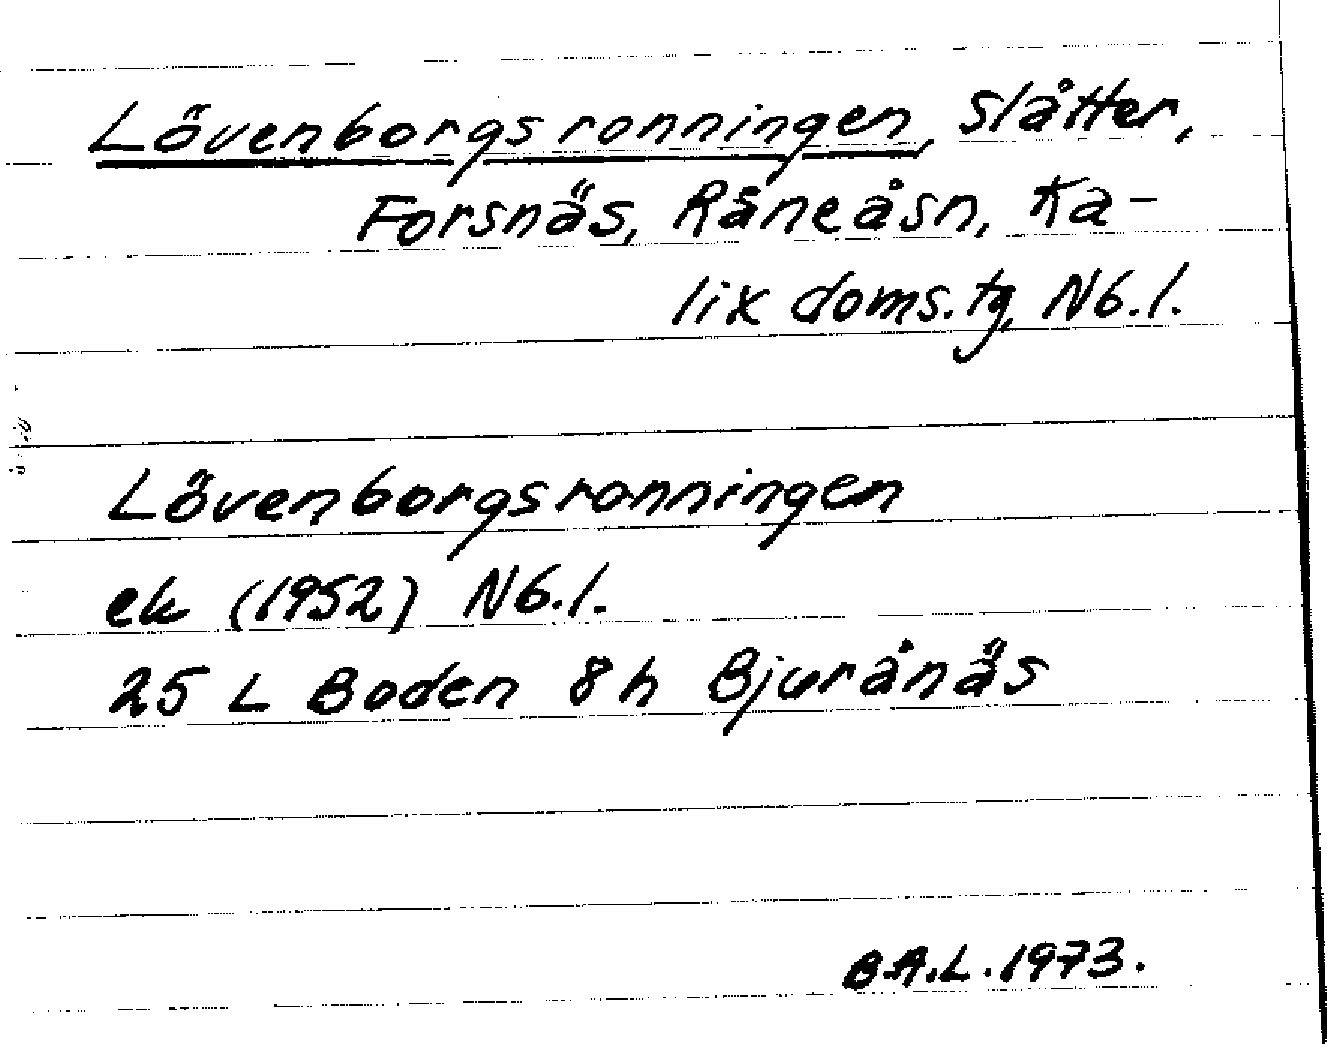 Lövenborgsronningen, Slåtter,
Forsnäs, Råneåsn, Ka-
lix doms.tg, Nb.l.
Lövenborgsronningen
ek (1952) Nb.l.
25 L Boden 8h Bjurånäs
B.A.L. 1973.